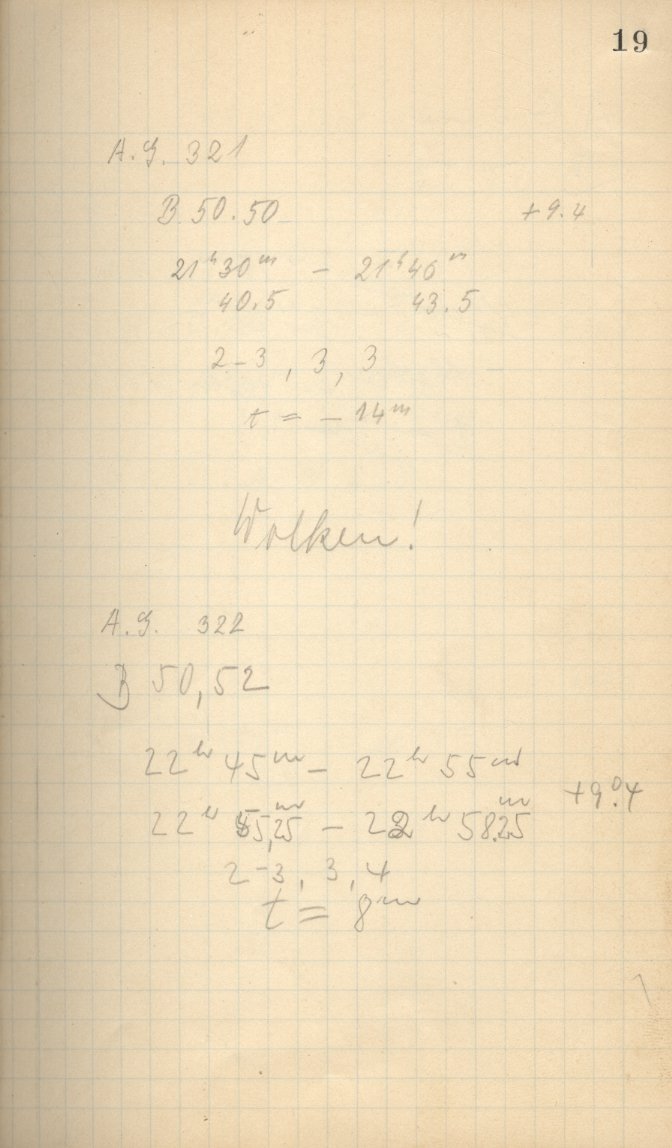 19
A. G. 321
B 50.50 +9.4
21ʰ30ᵐ – 21ʰ46ᵐ
40.5 43.5
2–3, 3, 3
t = – 14ᵐ
Wolken!
A. G. 322
B 50,52
22ʰ 45ᵐ – 22ʰ 55ᵐ
+9°.4
22ʰ 55,25ᵐ – 22ʰ 58.25ᵐ
2–3, 3, 4
t = 8ᵐ